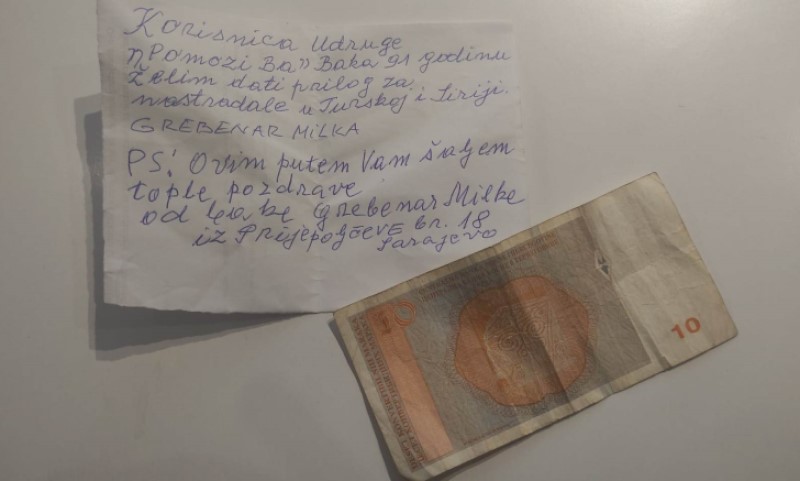 Korisnica Udruge
„Pomozi Ba" Baka 91 godinu
Želim dati prilog za
nastradale u Turskoj i Siriji.
GREBENAR MILKA
PS! Ovim putem Vam šaljem
tople pozdrave
od bake Grebenar Milke
iz Prijepoljčeve br. 18
Sarajevo
10